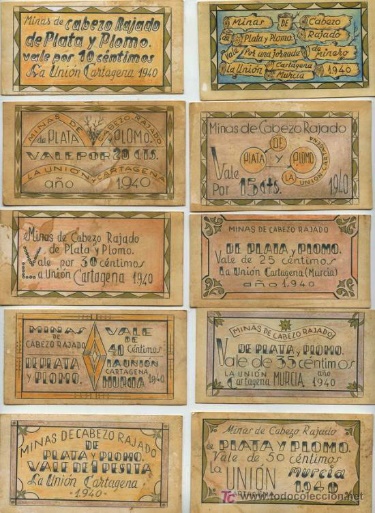 Minas de Cabezo Rajado
de Plata y Plomo.
vale por 10 céntimos
La Unión Cartagena 1940
Minar DE Cabezo
de Rajado
Plata y Plomo.
Vale Por una Jornada de minero
La Unión Cartagena 1940
Murcia
MINAS DE CABEZO RAJADO
de PLATA y PLOMO.
VALE POR 20 cts.
LA UNIÓN CARTAGENA
año 1940
Minas de Cabezo Rajado
DE DE
PLATA y PLOMO
Vale LA UNIÓN CARTAGENA
Por 15 cts. 1940
Minas de Cabezo Rajado
de Plata y Plomo.
Vale por 30 céntimos
La Unión Cartagena 1940
MINAS DE CABEZO RAJADO
DE PLATA y PLOMO.
Vale de 25 centimos
La Unión Cartagena (Murcia)
año 1940
MINAS VALE
DE CABEZO RAJADO DE
DE PLATA 40 Centimos
y PLOMO. LA UNION
CARTAGENA
MURCIA 1940
MINAS DE CABEZO RAJADO
DE PLATA y PLOMO.
Vale de 35 centimos
LA UNIÓN año
Cartagena MURCIA 1940
MINAS DE CABEZO RAJADO
DE
PLATA y PLOMO
VALE DE 1 PESETA
La Unión Cartagena
-1940-
Minar de Cabezo Rajado
de PLATA y PLOMO.
Vale de 50 centimos
la UNIÓN Murcia
1940
todocoleccion.net